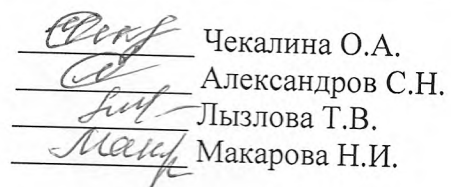 Чекалина О.А.
Александров С.Н.
Лызлова Т.В.
Макарова Н.И.